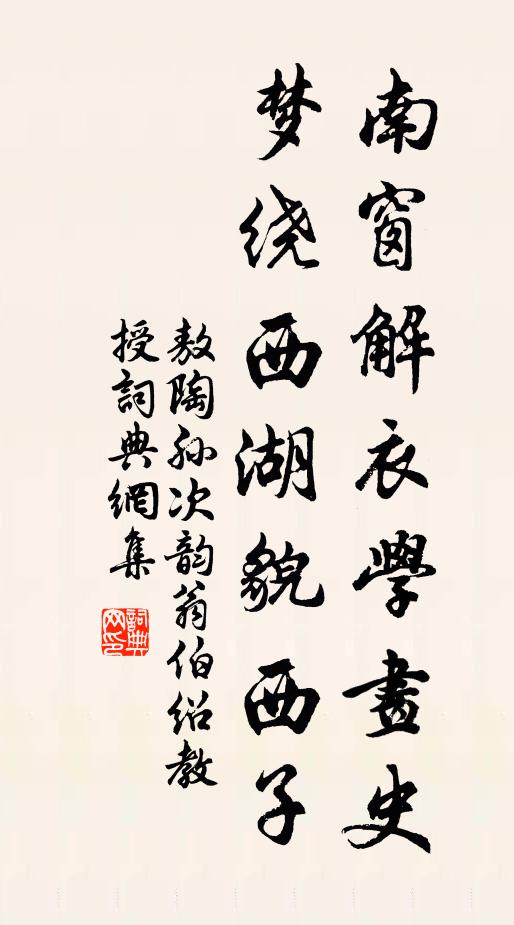 南窗解衣學畫史
梦绕西湖貌西子
敖陶孙次韵翁伯绍教
授詞典網集
詞典
网印